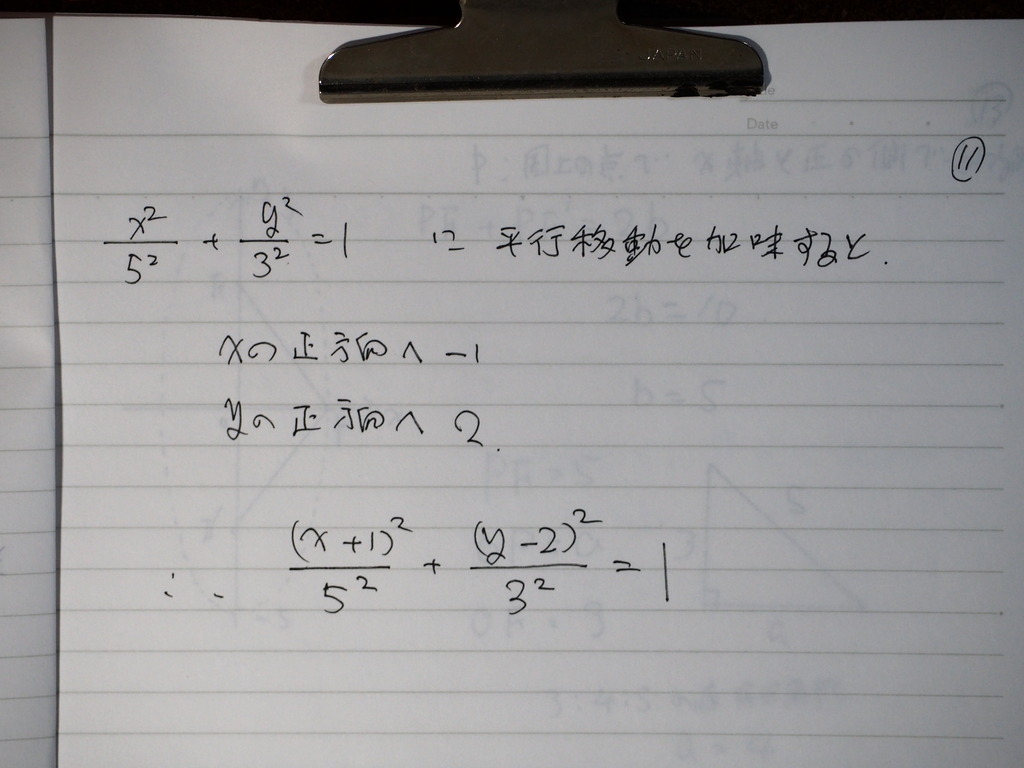 JAPAN
Date
⑪
x²/5² + y²/3² = 1 に 平行移動を加味すると.
xの正方向へ -1
yの正方向へ 2.
∴ (x+1)²/5² + (y-2)²/3² = 1